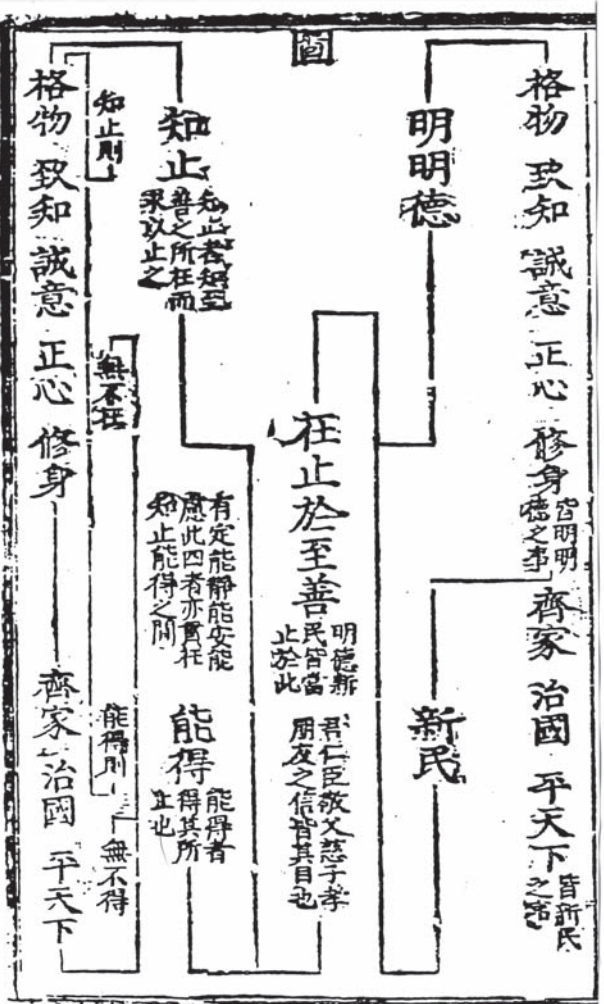 圖
格物 致知 誠意 正心 修身
皆明明
德之事
齊家 治國 平天下
皆新民
之事
明明德
新民
在止於至善
明德新
民皆當
止於此
君仁臣敬父慈子孝
朋友之信皆其目也
知止
知止者知至
善之所在而
求以止之
有定能靜能安能
慮此四者亦實在
知止能得之間
能得
能得者
得其所
止也
知止則
無不在
能得則
無不得
格物 致知 誠意 正心 修身
齊家 治國 平天下